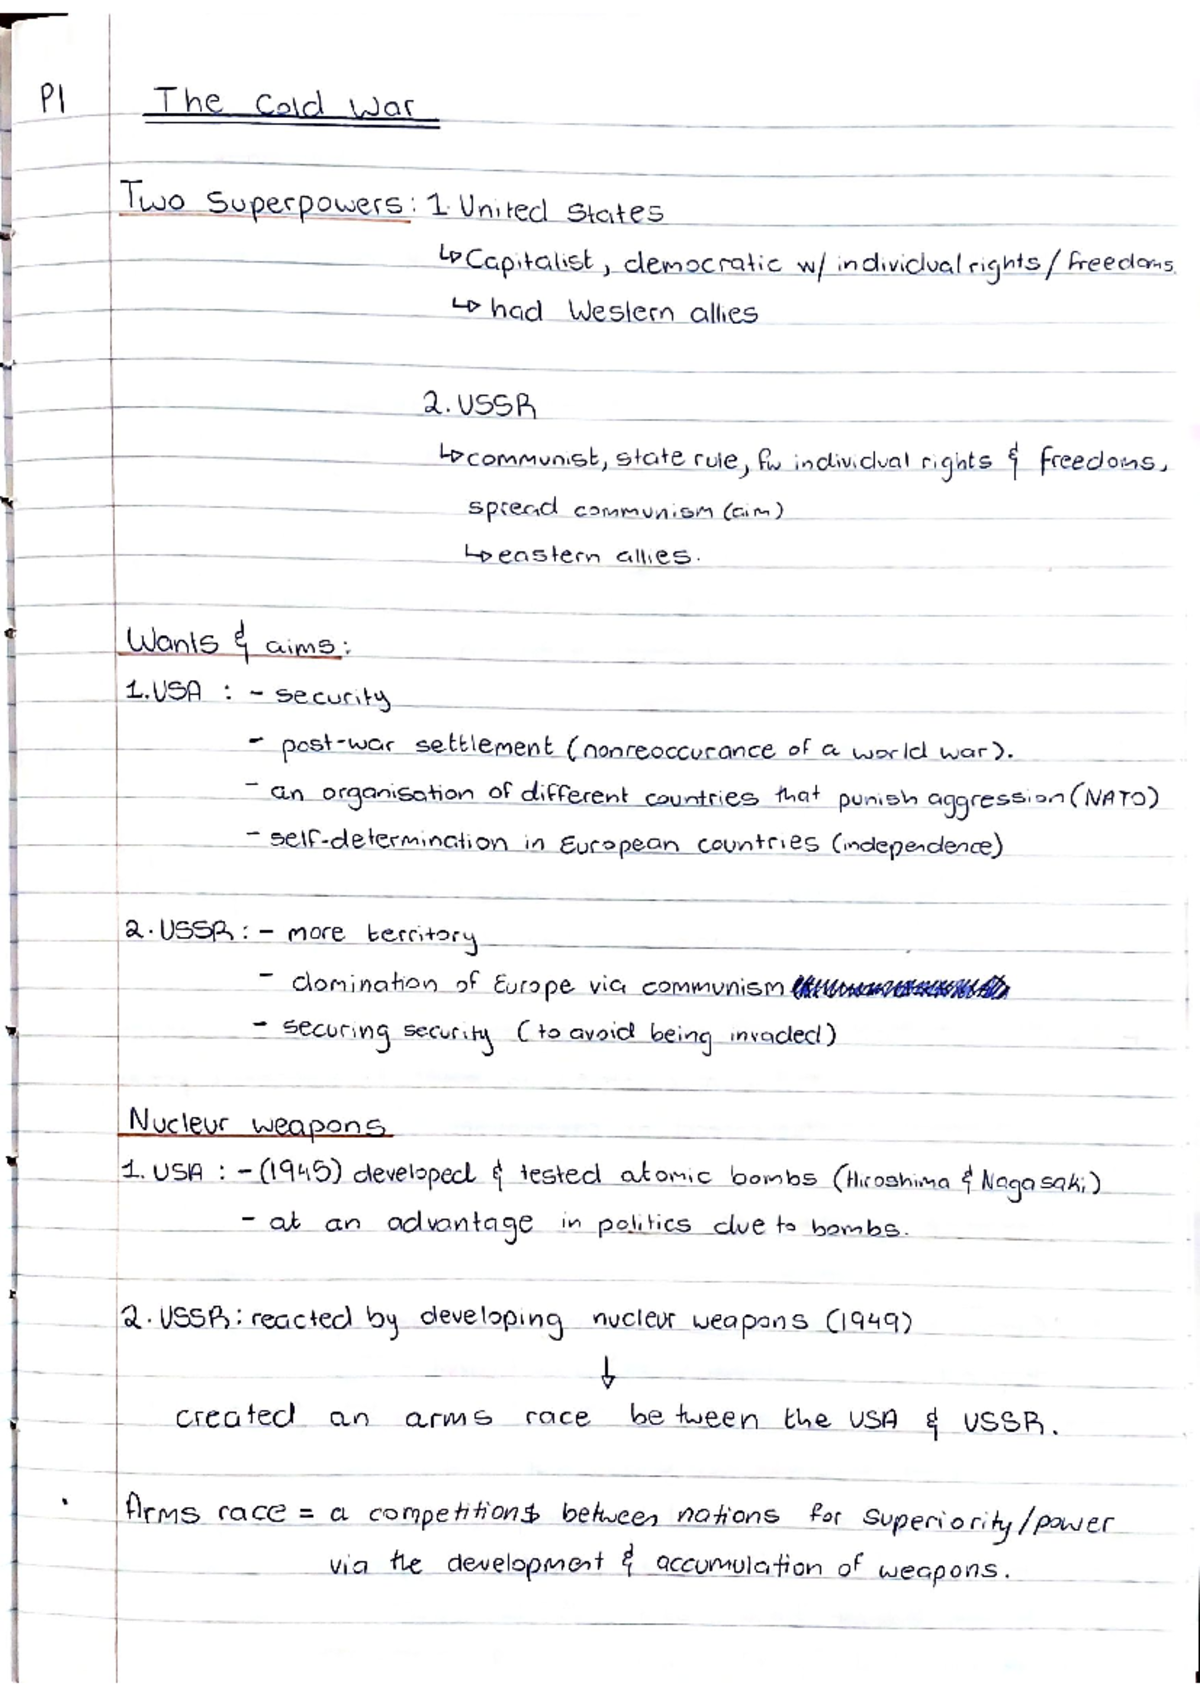 P1 The Cold War
Two Superpowers: 1. United States
↳ Capitalist, democratic w/ individual rights/freedoms.
↳ had Western allies
2. USSR
↳ communist, state rule, fw individual rights & freedoms,
spread communism (aim)
↳ eastern allies.
Wants & aims:
1. USA : - security
- post-war settlement (nonreoccurance of a world war).
- an organisation of different countries that punish aggression (NATO)
- self-determination in European countries (independence)
2. USSR : - more territory
- domination of Europe via communism
- securing security (to avoid being invaded)
Nucleur weapons
1. USA : - (1945) developed & tested atomic bombs (Hiroshima & Nagasaki)
- at an advantage in politics due to bombs.
2. USSR : reacted by developing nucleur weapons (1949)
↓
created an arms race between the USA & USSR.
Arms race = a competition between nations for superiority/power
via the development & accumulation of weapons.